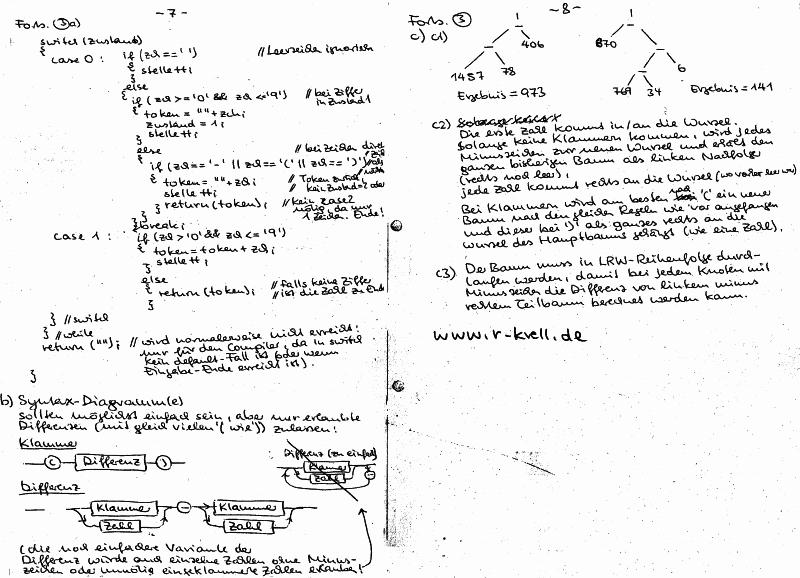 - 7 -
Forts. ③a)
switch (zustand)
{ case 0 : if (zch == ' ') // Leerzeichen ignorieren
{ stelle++;
}
else
{ if (zch >= '0' && zch <= '9') // bei Ziffer
in Zustand 1
{ token = "" + zch;
zustand = 1;
stelle++;
}
else // bei Zeichen direkt
{ if (zch == '-' || zch == '(' || zch == ')')
{ token = "" + zch; // Token zurück
stelle++; // kein Zustand 2 oder
return (token); // kein case 2
nötig, da nur
1 Zeichen. Ende!
} } }
break;
case 1 : if (zch > '0' && zch <= '9')
{ token = token + zch;
stelle++;
}
else // falls keine Ziffer
{ return (token); // ist die Zahl zu Ende
}
} // switch
} // while
return (""); // wird normalerweise nicht erreicht!
nur für den Compiler, da in switch
kein default-Fall ist (oder wenn
Eingabe-Ende erreicht ist).
}
b) Syntax-Diagramm(e)
sollten möglichst einfach sein, aber nur erlaubte
Differenzen (mit gleich vielen '(' wie ')') zulassen:
Klammer
( Differenz )
Differenz (zu einfach)
Klammer
Zahl
-
Differenz
Klammer - Klammer
Zahl Zahl
(die noch einfachere Variante der
Differenz würde auch einzelne Zahlen ohne Minus-
zeichen oder unnötig eingeklammerte Zahlen erlauben!
- 8 -
Forts. ③
c) c1)
- 406
1457 78
Ergebnis = 973
870 -
- 6
769 34
Ergebnis = 141
c2)
Die erste Zahl kommt in/an die Wurzel.
Solange keine Klammern kommen, wird jedes
Minuszeichen zur neuen Wurzel und erhält den
ganzen bisherigen Baum als linken Nachfolger
(rechts noch leer),
jede Zahl kommt rechts an die Wurzel (wo vorher leer war)
Bei Klammern wird am besten nach '(' ein neuer
Baum nach den gleichen Regeln wie vor angefangen
und dieser bei ')' als ganzes rechts an die
Wurzel des Hauptbaums gehängt (wie eine Zahl).
c3) Der Baum muss in LRW-Reihenfolge durch-
laufen werden, damit bei jedem Knoten mit
Minuszeichen die Differenz von linkem minus
rechtem Teilbaum berechnet werden kann.
www.r-krell.de